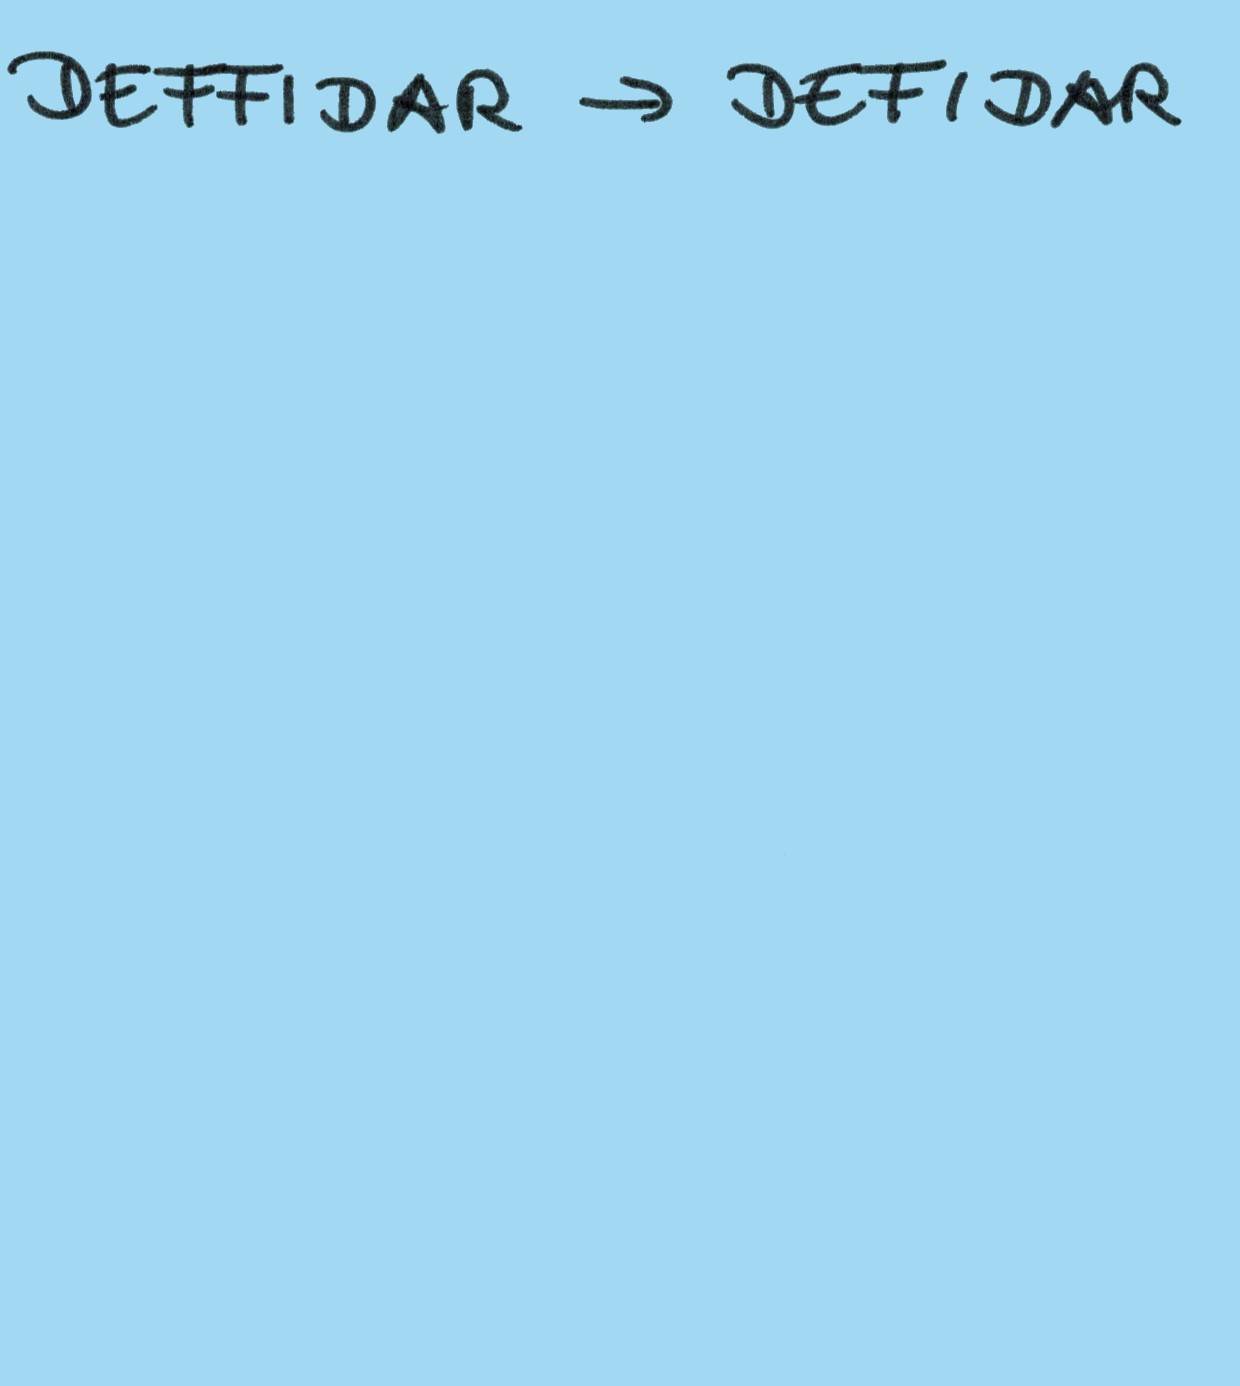 DEFFIDAR → DEFIDAR